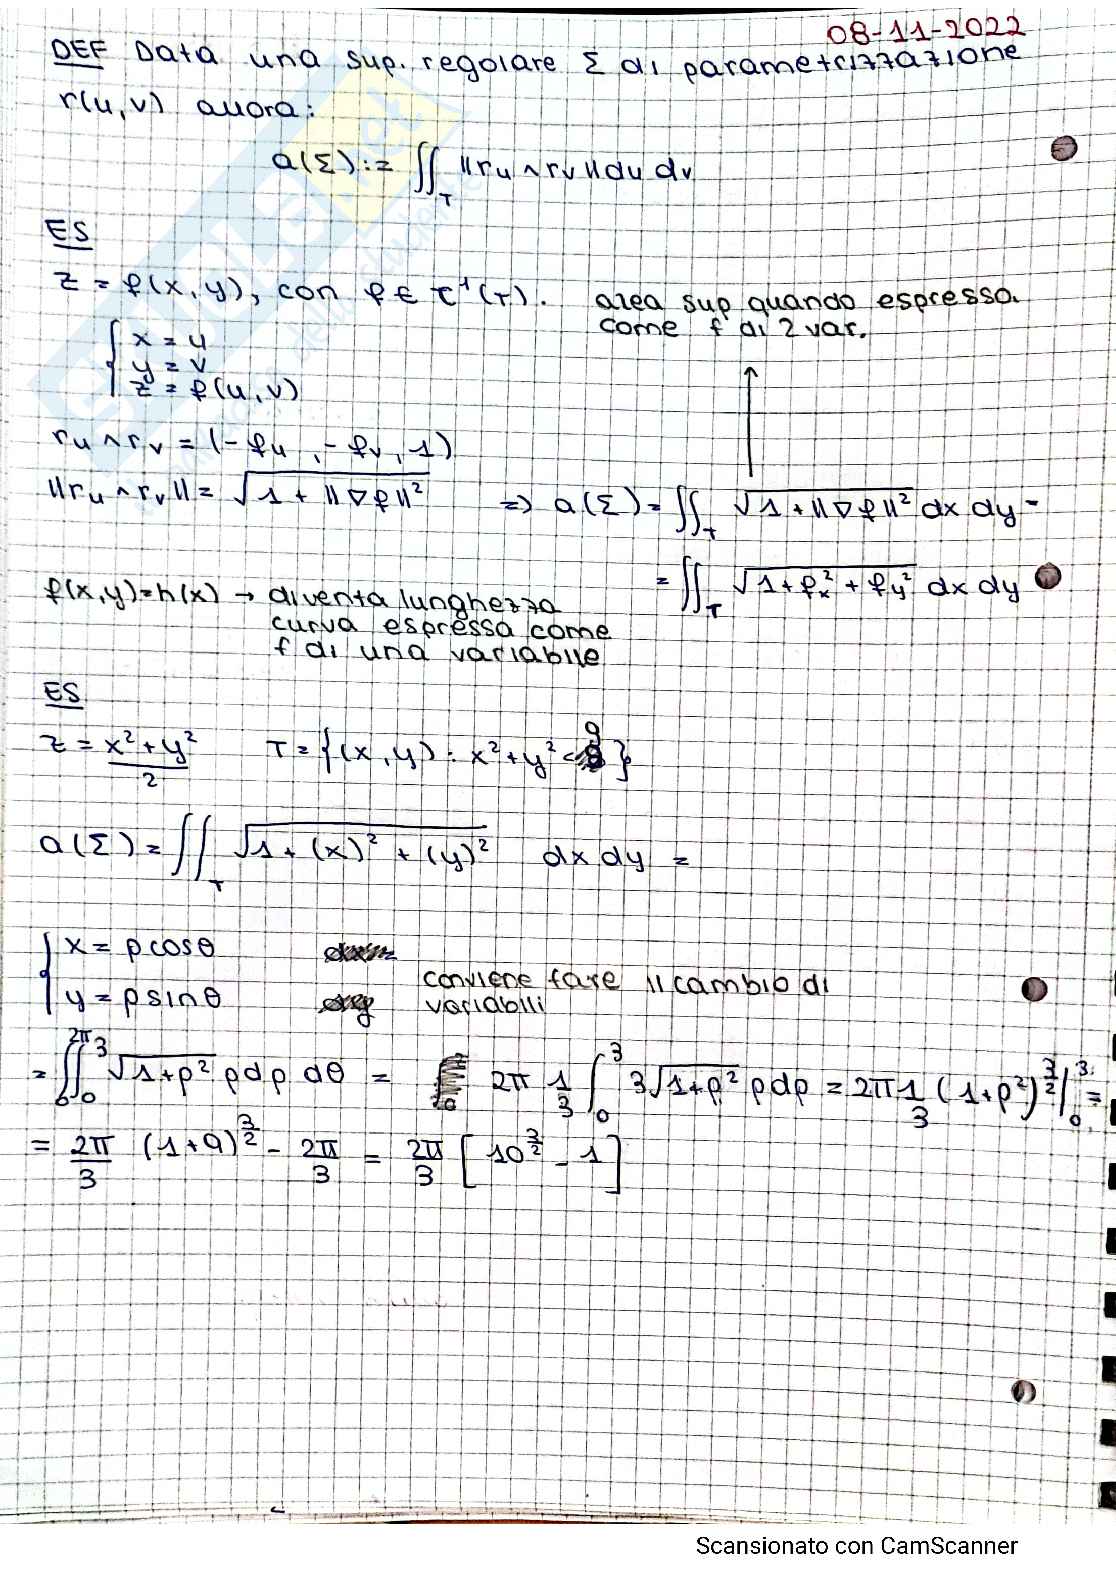 08-11-2022
DEF Data una sup. regolare Σ di parametrizzazione
r(u,v) allora:
a(Σ) := ∬_T ||r_u ∧ r_v|| du dv
ES
z = f(x,y), con f ∈ C¹(T). area sup quando espressa
come f di 2 var.
{ x = u
y = v
z = f(u,v)
r_u ∧ r_v = (-f_u, -f_v, 1)
||r_u ∧ r_v|| = √(1 + ||∇f||²) => a(Σ) = ∬_T √(1 + ||∇f||²) dx dy =
= ∬_T √(1 + f_x² + f_y²) dx dy
f(x,y) = h(x) → diventa lunghezza
curva espressa come
f di una variabile
ES
z = (x² + y²)/2 T = {(x,y) : x² + y² < 9}
a(Σ) = ∬_T √(1 + (x)² + (y)²) dx dy =
{ x = ρ cosθ
y = ρ sinθ
conviene fare il cambio di
variabili
= ∫_0^{2π} ∫_0^3 √(1+ρ²) ρ dρ dθ = 2π 1/3 ∫_0^3 3√(1+ρ²) ρ dρ = 2π 1/3 (1+ρ²)^{3/2} |_0^3 =
= 2π/3 (1+9)^{3/2} - 2π/3 = 2π/3 [10^{3/2} - 1]
Scansionato con CamScanner